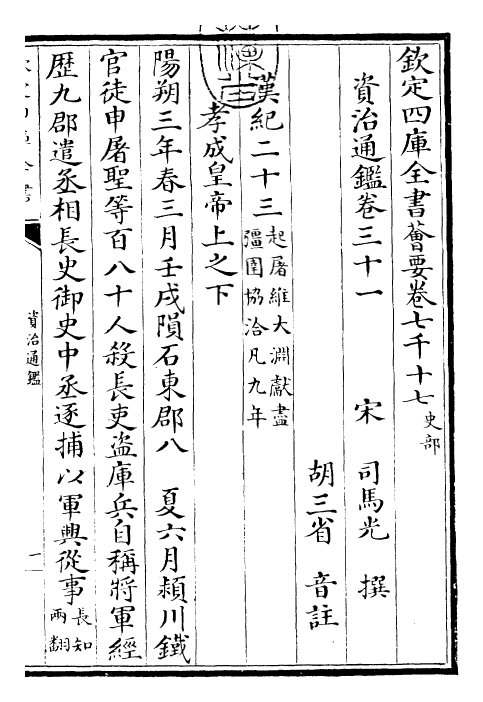 欽定四庫全書薈要卷七千十七史部
資治通鑑卷三十一
宋 司馬光 撰
胡三省 音註
漢紀二十三起屠維大淵獻盡
彊圉協洽凡九年
孝成皇帝上之下
陽朔三年春三月壬戌隕石東郡八 夏六月潁川鐵
官徒申屠聖等百八十人殺長吏盜庫兵自稱將軍經
歷九郡遣丞相長史御史中丞逐捕以軍興從事長知
兩翻
資治通鑑
一